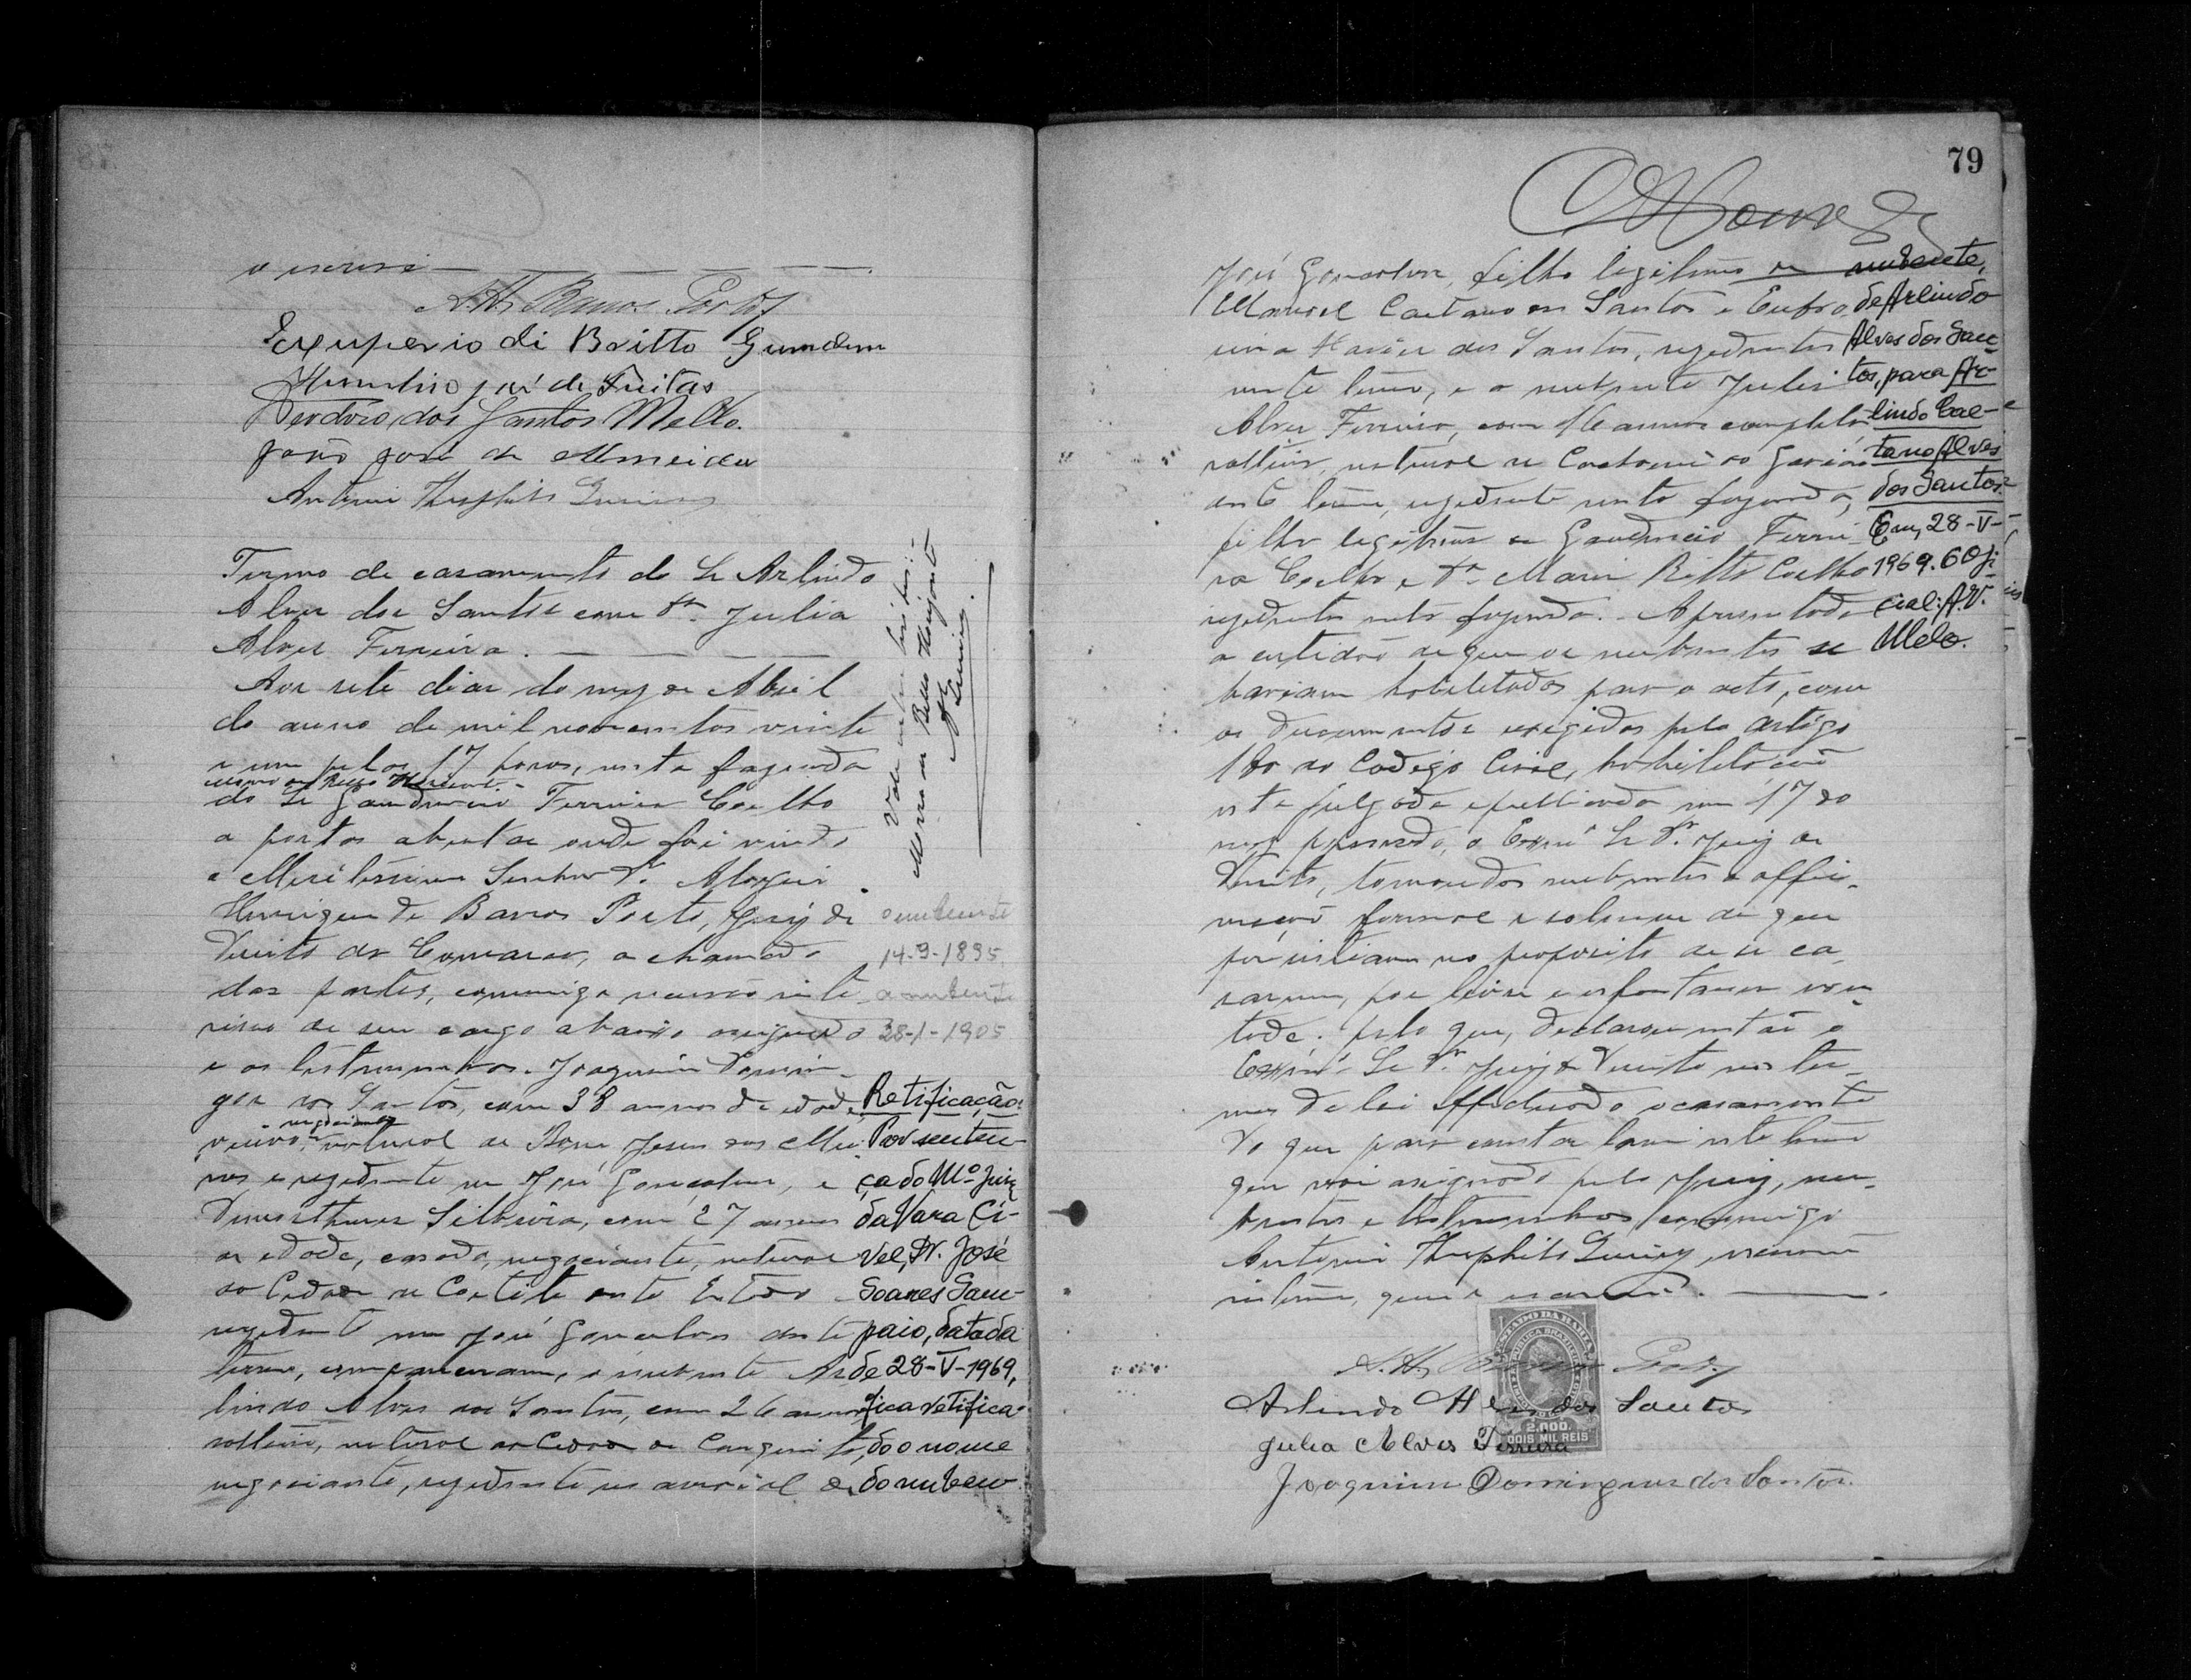 o escrevi
A. H. Barros Porto
Exuperio di Britto Gumdem
José de Freitas
Deodoro dos Santos Mello.
João José de Almeida
Antonio Theophilo
Termo de casamento do Sr Arlindo
Alves dos Santos com Da. Julia
Alves Ferreira.
Aos sete dias do mez de Abril
do anno de mil novecentos vinte
e um pelas 17 horas, nesta fazenda
do Sr Gaudencio Ferreira Coelho
a portas abertas onde foi vindo
o Meritissimo Senhor Dr. Aloysio
Henrique de Barros Porto, Juiz de
Direito da Comarca, a chamado
das partes, commigo
de seu cargo abaixo assignado
e as testemunhas. Joaquim Domin-
gues dos Santos, com 38 annos de edade,
negociante
viuvo, natural de Bom Jesus dos Mei-
ras e rezidente em José Gonçalves, e
Silveira, com 27 annos
de edade, casado, negociante, natural
da Cidade de Caetité neste Estado
rezidente em José Gonçalves deste
termo, compareceram, o nubente Ar-
lindo Alves dos Santos, com 26 annos
solteiro, natural da Cidade de
negociante, rezidente no arraial de
Vale
de Bello Horizonte
o nubente
14-9-1895
a nubente
28-1-1905
Retificação:
Por senten-
ça do Mº Juiz
da Vara Cí-
vel, Dr. José
Soares Sam-
paio, datada
de 28-V-1969,
fica retifica-
do o nome
do nuben-
79
José Gonçalves, filho legitimo de
Manoel Caetano dos Santos e Eufro-
Xavier dos Santos, rezidentes
neste termo, e a nubente Julia
Alves Ferreira, com 16 annos completos
solteira, natural de
deste termo, rezidente nesta fazenda,
filha legitima de Gaudencio Ferrei-
ra Coelho e Da. Maria Britto Coelho
rezidentes nesta fazenda. Apresentada
a certidão de que os nubentes se
haviam habilitados para o acto, com
os documentos exigidos pelo artigo
180 do Codigo Civil, habilitação
esta julgada e publicada em 17 do
mez passado, o Exmo Sr Dr. Juiz de
Direito, tomando dos nubentes a affir-
mação formal e solemne de que
persistiam no proposito de se ca-
sarem, por livre e espontanea von-
tade. pelo que, declarou então o
Exmo Sr Dr. Juiz de Direito nos ter-
mos da lei effectuado o casamento
Do que para constar lavrei este termo
que vai assignado pelo Juiz, nu-
bentes e testemunhas, commigo
Antonio Theophilo
interino, que o escrevi.
te,
de Arlindo
Alves dos San-
tos, para Ar-
lindo Cae-
tano Alves
dos Santos
Em, 28-V-
1969. O Ofi-
cial: A.V.
Melo.
ESTADO DA BAHIA
2.000
DOIS MIL REIS
A. H. Barros Porto
Arlindo Alves dos Santos
Julia Alves Ferreira
Joaquim Domingues dos Santos.